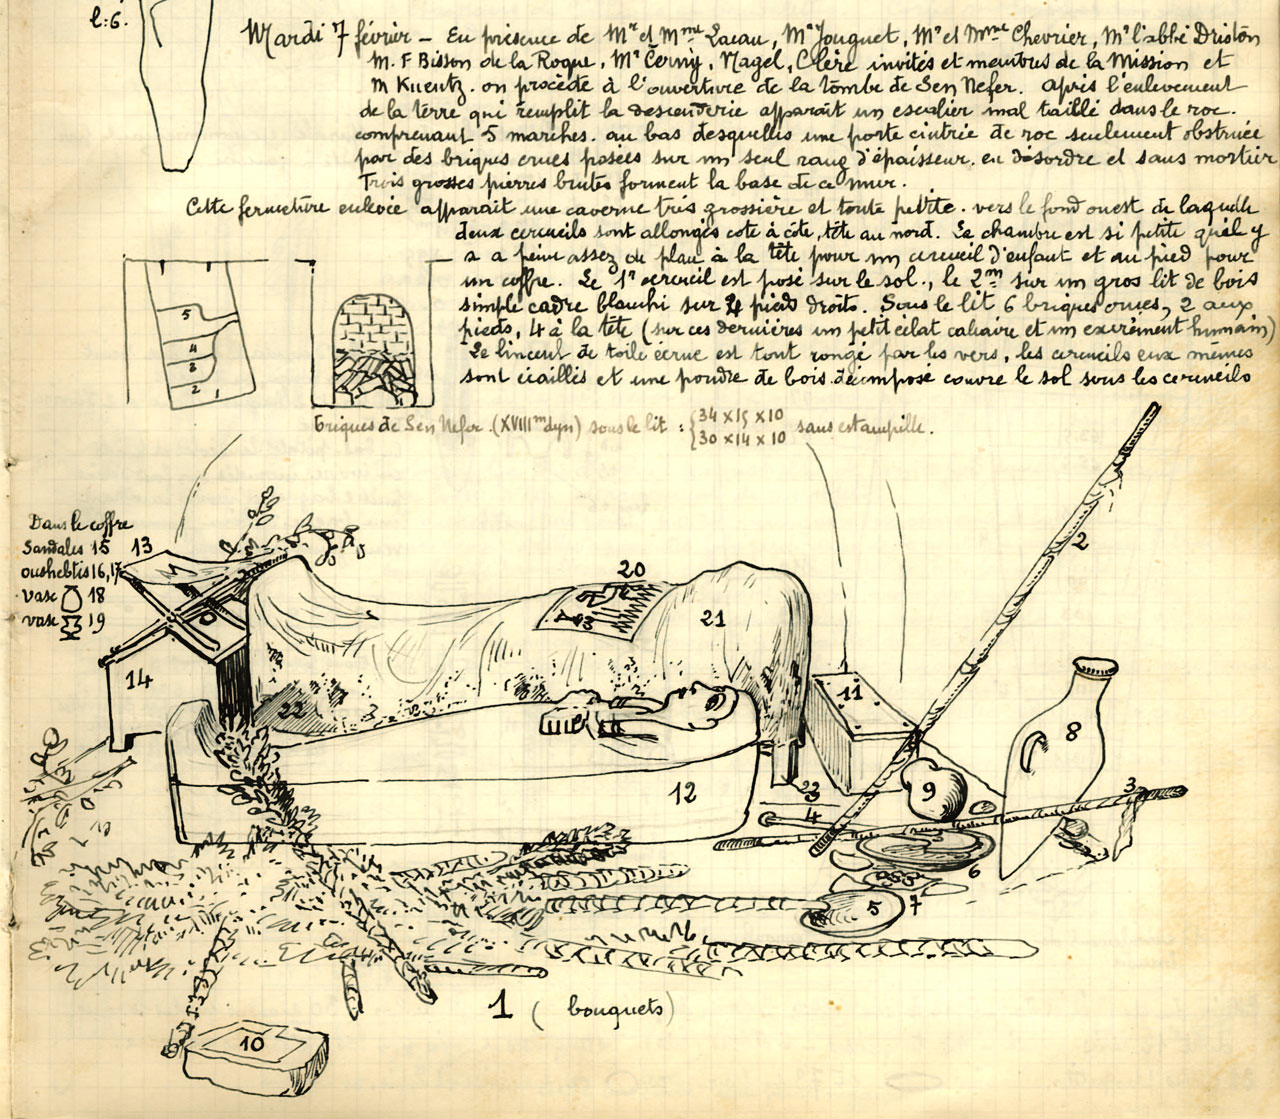 l:6.
Mardi 7 février – En présence de Mr et Mme Lacau, Mr Jouguet, Mr et Mme Chevrier, Mr l'abbé Driotön
M. F Bisson de la Roque, Mr Černy, Nagel, Clère invités et membres de la Mission et
M Kuentz. on procède à l'ouverture de la tombe de Sen Nefer. après l'enlevement
de la terre qui remplit la descenderie apparait un escalier mal taillé dans le roc.
comprenant 5 marches. au bas desquelles une porte cintrée de roc seulement obstruée
par des briques crues posées sur un seul rang d'épaisseur. en désordre et sans mortier
Trois grosses pierres brutes forment la base de ce mur.
Cette fermeture enlevée apparait une caverne très grossière et toute petite. vers le fond ouest de laquelle
deux cercueils sont allongés cote à côte, tête au nord. La chambre est si petite qu'il y
a a peine assez de place à la tête pour un cercueil d'enfant et au pied pour
un coffre. Le 1r cercueil est posé sur le sol., le 2m sur un gros lit de bois
simple cadre blanchi sur 4 pieds droits. Sous le lit 6 briques crues, 2 aux
pieds, 4 à la tête (sur ces dernières un petit eclat calcaire et un excrément humain)
Le linceul de toile écrue est tout rongé par les vers, les cercueils eux mêmes
sont écaillés et une poudre de bois décomposé couvre le sol sous les cercueils
5
4
3
2 1
briques de Sen Nefer. (XVIIIm dyn) sous le lit : { 34 x 15 x 10
30 x 14 x 10 sans estampille.
Dans le coffre
Sandales 15
oushebtis 16, 17
vase 18
vase 19
13
20
2
21
14
11
22
8
12
23
9
3
4
6
5
7
1 ( bouquets)
10